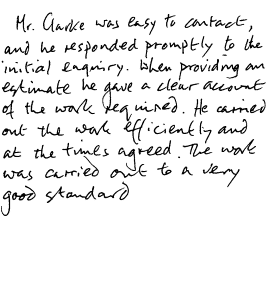 Mr. Clarke was easy to contact,
and he responded promptly to the
initial enquiry. When providing an
estimate he gave a clear account
of the work required. He carried
out the work efficiently and
at the times agreed. The work
was carried out to a very
good standard